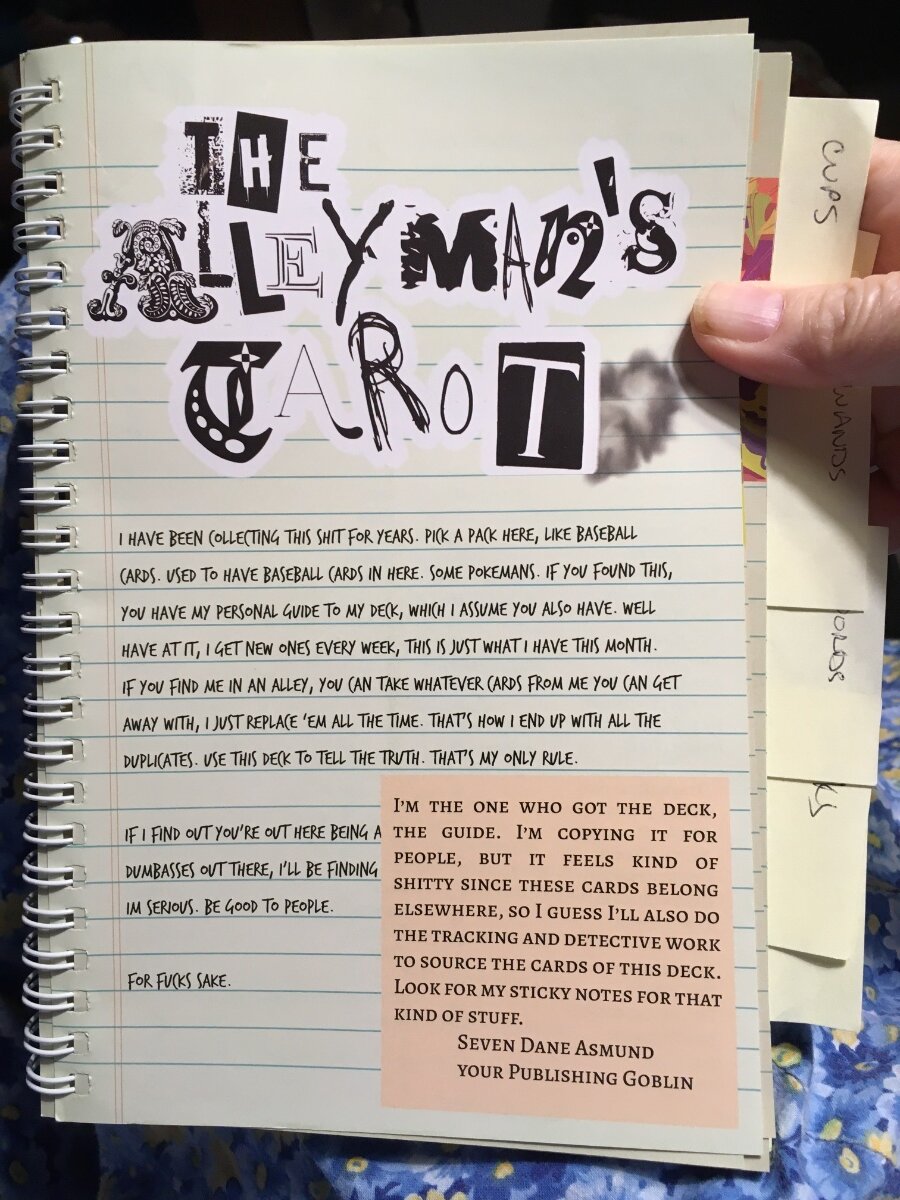 THE
ALLEYMAN'S
TAROT
I HAVE BEEN COLLECTING THIS SHIT FOR YEARS. PICK A PACK HERE, LIKE BASEBALL
CARDS. USED TO HAVE BASEBALL CARDS IN HERE. SOME POKEMANS. IF YOU FOUND THIS,
YOU HAVE MY PERSONAL GUIDE TO MY DECK, WHICH I ASSUME YOU ALSO HAVE. WELL
HAVE AT IT, I GET NEW ONES EVERY WEEK, THIS IS JUST WHAT I HAVE THIS MONTH.
IF YOU FIND ME IN AN ALLEY, YOU CAN TAKE WHATEVER CARDS FROM ME YOU CAN GET
AWAY WITH, I JUST REPLACE 'EM ALL THE TIME. THAT'S HOW I END UP WITH ALL THE
DUPLICATES. USE THIS DECK TO TELL THE TRUTH. THAT'S MY ONLY RULE.
IF I FIND OUT YOU'RE OUT HERE BEING A
DUMBASSES OUT THERE, I'LL BE FINDING
IM SERIOUS. BE GOOD TO PEOPLE.
FOR FUCKS SAKE.
I'M THE ONE WHO GOT THE DECK,
THE GUIDE. I'M COPYING IT FOR
PEOPLE, BUT IT FEELS KIND OF
SHITTY SINCE THESE CARDS BELONG
ELSEWHERE, SO I GUESS I'LL ALSO DO
THE TRACKING AND DETECTIVE WORK
TO SOURCE THE CARDS OF THIS DECK.
LOOK FOR MY STICKY NOTES FOR THAT
KIND OF STUFF.
SEVEN DANE ASMUND
YOUR PUBLISHING GOBLIN
CUPS
WANDS